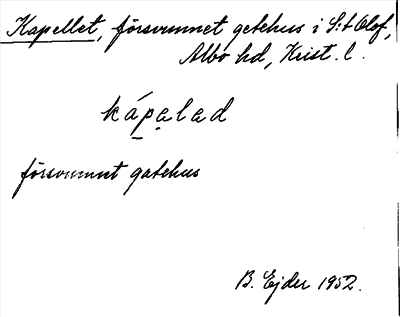 Kapellet, försvunnet gatehus i S:t Olof,
Albo hd, Krist. l.
kápalad
försvunnet gatehus
B. Ejder 1952.